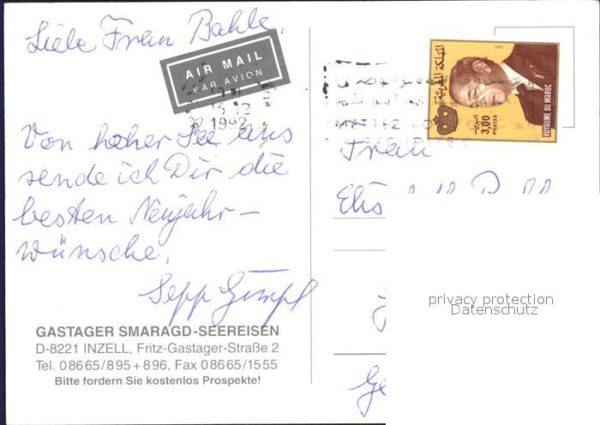 Liebe Frau Bahle,
AIR MAIL
PAR AVION
15 12
1992
Von hoher See aus
sende ich Dir die
besten Neujahr-
wünsche.
Sepp Gimpl
GASTAGER SMARAGD-SEEREISEN
D-8221 INZELL, Fritz-Gastager-Straße 2
Tel. 08665/895 + 896, Fax 08665/1555
Bitte fordern Sie kostenlos Prospekte!
المملكة المغربية
1992
3,00
POSTES
ROYAUME DU MAROC
Frau
privacy protection
Datenschutz